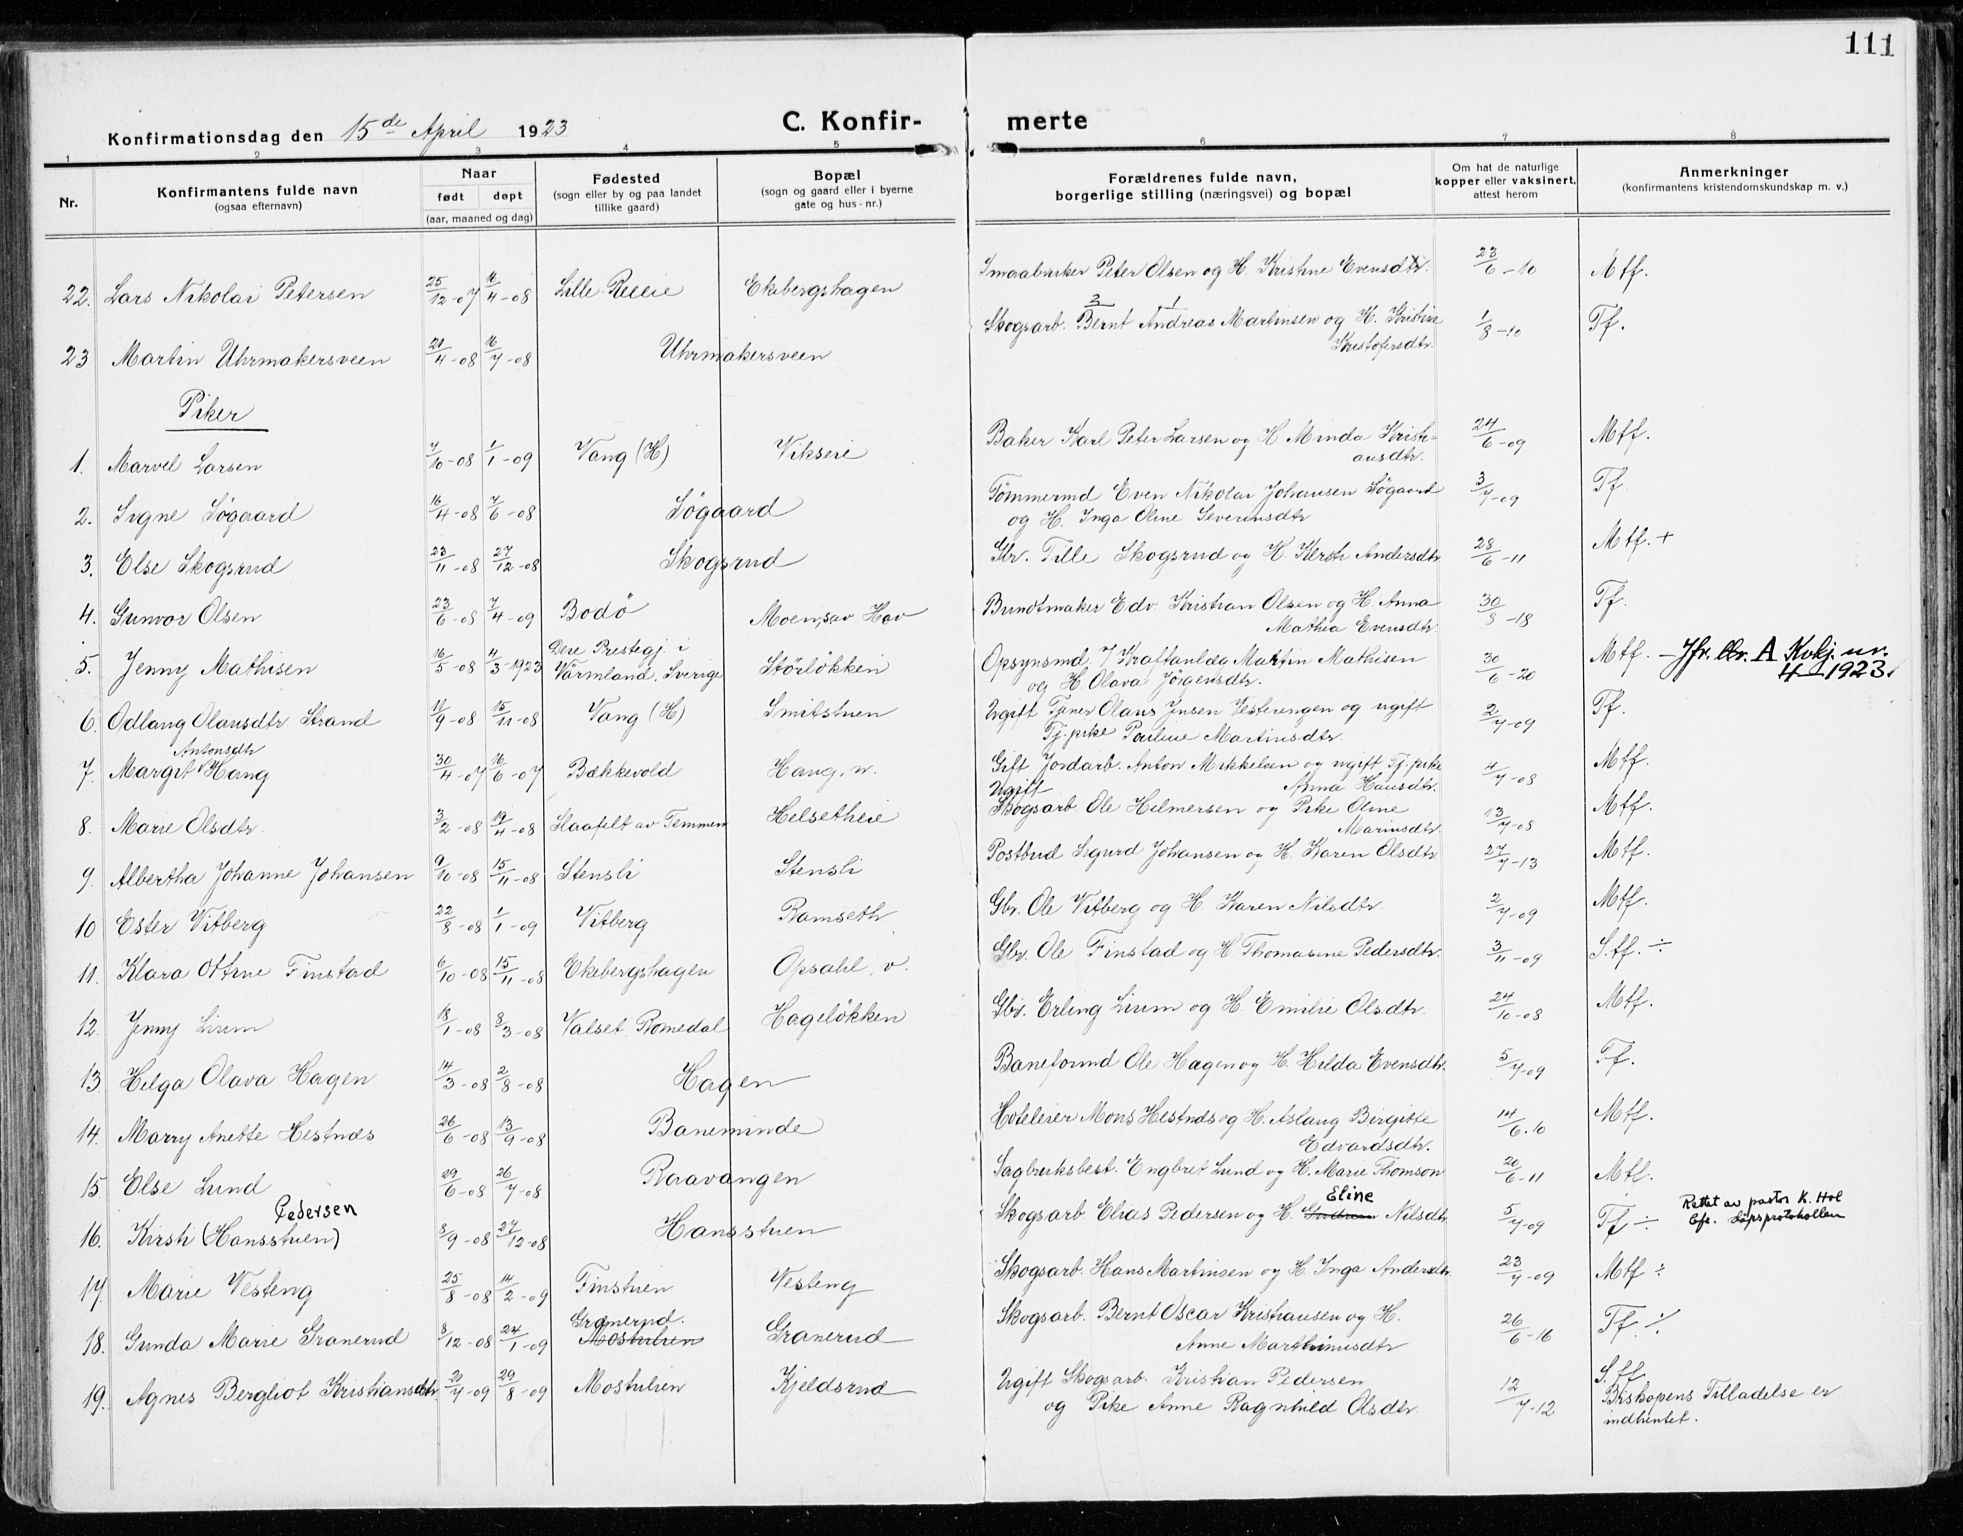 111
Konfirmationsdag den 15de April 1923
C. Konfir- merte
1 2 3 4 5 6 7 8
Nr.
Konfirmantens fulde navn
(ogsaa efternavn)
Naar
født døpt
(aar, maaned og dag)
Fødested
(sogn eller by og paa landet
tillike gaard)
Bopæl
(sogn og gaard eller i byerne
gate og hus-nr.)
Forældrenes fulde navn,
borgerlige stilling (næringsvei) og bopæl
Om hat de naturlige
kopper eller vaksinert,
attest herom
Anmerkninger
(konfirmantens kristendomskundskap m. v.)
22. Lars Nikolai Petersen 25/12-07 16/4-08 Lille- Ekebergshagen Smaabruker Peter Olsen og H. Kristine Evensdtr. 23/6-10 Mtf.
23 Martin Uhrmakersveen 21/4-08 16/7-08 Uhrmakersveen Skogsarb. Bernt Andreas Martinsen og H. Kristine 1/8-10 Tf.
Kristofersdtr.
Piker
1. Marvel Larsen 7/10-08 1/1-09 Vang (H) Vikseie Baker Karl Peter Larsen og H. Minda Kristi- 24/6-09 Mtf.
ansdtr.
2. Signe Søgaard 16/4-08 7/6-08 Søgaard Tømmermd Even Nikolai Johansen Søgaard 3/7-09 Tf.
og H. Inga Oline Severinsdtr
3. Else Skogsrud 23/11-08 27/12-08 Skogsrud Gbr. Tille Skogsrud og H. Kirsti Andersdtr 28/6-11 Mtf. +
4. Gunvor Olsen 23/6-08 7/4-09 Bodö Moen, sav Hov Buntmaker Edv. Kristian Olsen og H. Anna 30/8-18 Tf.
Mathea Evensdtr.
5. Jenny Mathisen 16/5-08 4/3-1923 Dere Prestegj. i Störløkken Opsynsmd. v/ Kraftanlæg Martin Mathisen 30/6-20 Mtf. - Jfr. litr. A Kvkj. nr.
Värmland. Sverige og H Olava Jörgensdtr. 4 1923.
6. Odlaug Olausdtr Strand 11/9-08 15/11-08 Vang (H) Smitstuen Ugift Tjener Olaus Jensen Vesterengen og ugift 2/7-09 Tf.
Tj. pike Pauline Martinsdtr.
Antonsdtr
7. Margit Haug 30/4-07 16/6-07 Bækkevold Haug. n. Gift Jordarb. Anton Mikkelsen og ugift Tj. pike 4/7-08 Mtf.
Anna Hansdtr.
Ugift
8. Marie Olsdtr. 3/2-08 19/4-08 Slaafelt av Temmen Helsetheie Skogsarb Ole Hilmersen og Pike Oline 13/7-08 Mtf.
Marinsdtr.
9. Albertha Johanne Johansen 9/10-08 15/11-08 Stensli Stensli Postbud Sigurd Johansen og H. Karen Olsdtr 27/7-13 Mtf.
10 Ester Vitberg 22/8-08 1/1-09 Vitberg Ramseth Gbr. Ole Vitberg og H. Karen Nilsdtr. 2/7-09 Mtf.
11. Klara Ottine Finstad 6/10-08 15/11-08 Ekebergshagen Opsahl, v. Gbr. Ole Finstad og H Thomasine Pedersdtr. 3/11-09 S.tf. ÷
12. Jenny Lium 18/1-08 8/3-08 Valset Romedal Hageløkken Gbr. Erling Lium og H. Emilie Olsdtr. 24/10-08 Mtf.
13. Helga Olava Hagen 14/3-08 2/8-08 Hagen Baneformd Ole Hagen og H. Hilda Evensdtr. 5/7-09 Tf.
14. Marry Anette Hestnæs 26/6-08 13/9-08 Baneminde Hoteleier Mons Hestnæs og H. Aslaug Birgitte 14/6.10 Mtf.
Edvardsdtr.
15 Else Lund 29/6-08 26/7-08 Raavangen Sagbruksbest. Engbret Lund og H. Marie Thomson 20/6-11 Mtf.
Pedersen Eline Rettet av pastor K. Hol
16. Kirsti (Hansstuen) 8/9-08 27/12-08 Hansstuen Skogsarb. Elias Pedersen og H. Gudrun Nilsdtr 5/7-09 Tf ÷ Cfr. Dåpsprotokollen
17. Marie Vesteng 25/8-08 14/2-09 Finstuen Vesteng Skogsarb. Hans Martinsen og H. Inga Andersdtr. 23/7-09 Mtf ÷
Granerud.
18. Gunda Marie Granerud 8/12-08 24/1-09 Mostulien Granerud Skogsarb. Bernt Oscar Kristiansen og H. 26/6-16 Tf. ÷
Anne Marthinusdtr
19. Agnes Bergliot Kristiansdtr 20/7-09 29/8-09 Mostulien Kjeldsrud Ugift Skogsarb. Kristian Pedersen 12/7-12 S. tf
og Pike Anne Ragnhild Olsdtr. Biskopens Tilladelse er
indhentet.